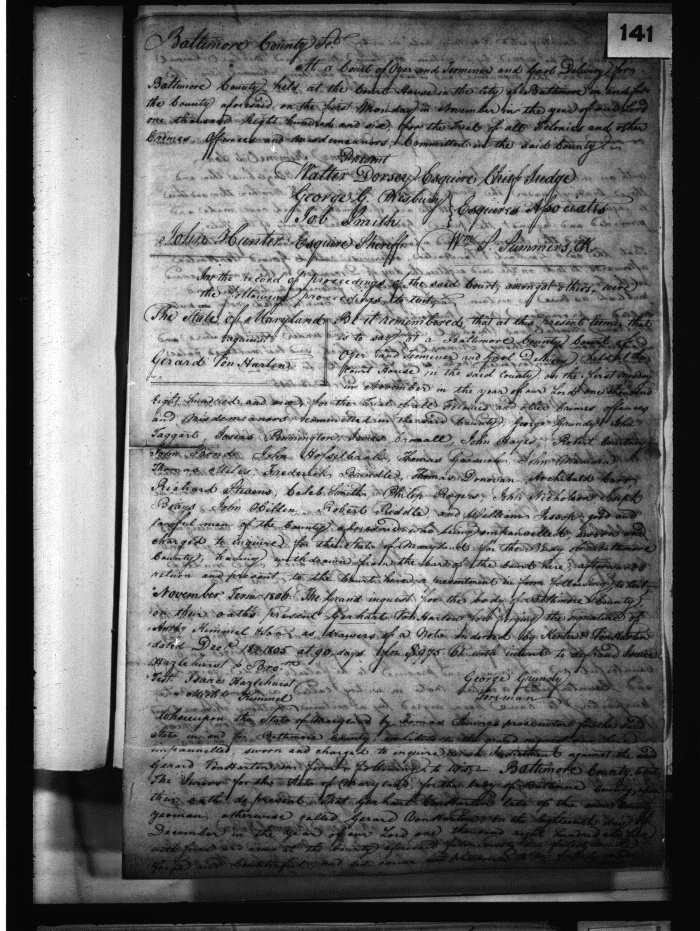 141
Baltimore County Sct
At a Court of Oyer and Terminer and Gaol Delivery for
Baltimore County held at the Court House in the City of Baltimore in and for
the County aforesaid on the first Monday in November in the year of our Lord
one thousand Eight hundred and six, for the Trial of all Felonies and other
Crimes Offences and misdemeanors, Committed in the said County
Present
Walter Dorsey Esquire Chief Judge
George G. Presbury
Job Smith } Esquires Associates
John Hunter Esquire Sheriff Wm. S. Summers, Ck
In the record of proceedings of the said Court, amongst others, were
the following proceedings, to wit,
The State of Maryland
against
Gerard VonHarten
Be it remembered, that at this present term, that
is to say, at a Baltimore County Court of
Oyer and Terminer and Gaol Delivery, held at the
Court House in the said County on the first Monday
in November in the year of our Lord one thousand
eight hundred and six, for the Trial of all Felonies and other Crimes offences
and Misdemeanors committed in the said County, George Grundy, John
Taggart, Josias Pennington, John Hayes, Robert
John Thomas John
Thomas Miles, Frederick Thomas Donovan Archibald
Richard Stevens, Caleb Smith, Philip Rogers, John Nicholson, Joseph
John Robert Ruddle and William good and
lawful men of the County aforesaid who being impannelled, sworn and
charged to enquire for the State of Maryland for the Body of Baltimore
County, having withdrawn from the bar of the Court here, afterwards
return and present to the Court here, a presentment in form following, to wit,
November Term 1806. The Grand inquest for the body of Baltimore County
on their oaths present Gerhart VonHarten for forging the signature of
Kimmel as drawers of a Note endorsed by VonHarten
dated Decr. 18 1805 at 90 days for $975 with intent to defraud
Hazlehurst & Bro.
Test Isaac Hazlehurst
Kimmel
George Grundy
Foreman
Whereupon the State of Maryland by Thomas Jennings prosecutor for the said
State in and for Baltimore County exhibits to the
impannelled, sworn and charged to inquire an Indictment against the said
Gerard VonHarten in form following, to wit, Baltimore County, to wit,
The Jurors for the State of Maryland, for the body of Baltimore County, upon
their oath do present, that Gerhart VonHarten late of the said County
yeoman, otherwise called Gerard VonHarten, on the eighteenth day of
December in the year of our Lord one thousand eight hundred and five
with force and arms at the County aforesaid feloniously did falsely make
forge and counterfeit, and did cause